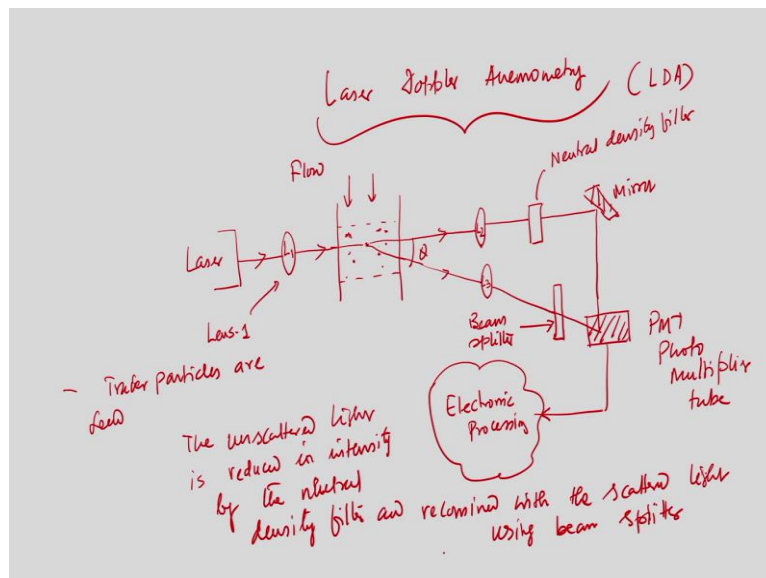 Laser Doppler Anemometry (LDA)
Neutral density filter
Flow
Mirror
Laser
L-1
L-2
θ
L-3
Lens-1
Beam
splitter
PMT
Photo
Multiplier
tube
- Tracer particles are
Electronic
Processing
The unscattered light
is reduced in intensity
by the neutral
density filter and recombined with the scattered light
using beam splitter